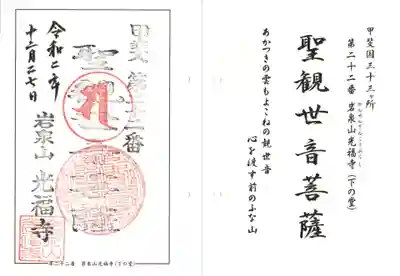 甲斐国三十三ヶ所
第二十二番 岩泉山光福寺(下の堂)
聖観世音菩薩
あかつきの雲もよこねの観世音
心を後す前のふな山
甲斐 第二十二番
聖観世音菩薩
令和二年
十二月二七日
岩泉山 光福寺
第二十二番 岩泉山光福寺(下の堂)